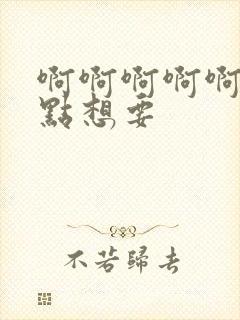 啊啊啊啊啊
點想要
不若歸去